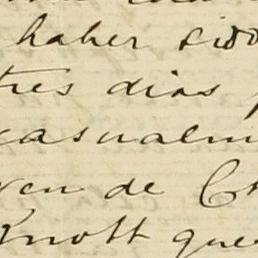 haber sido
tres dias
casualm
ven de Ch
Knott que